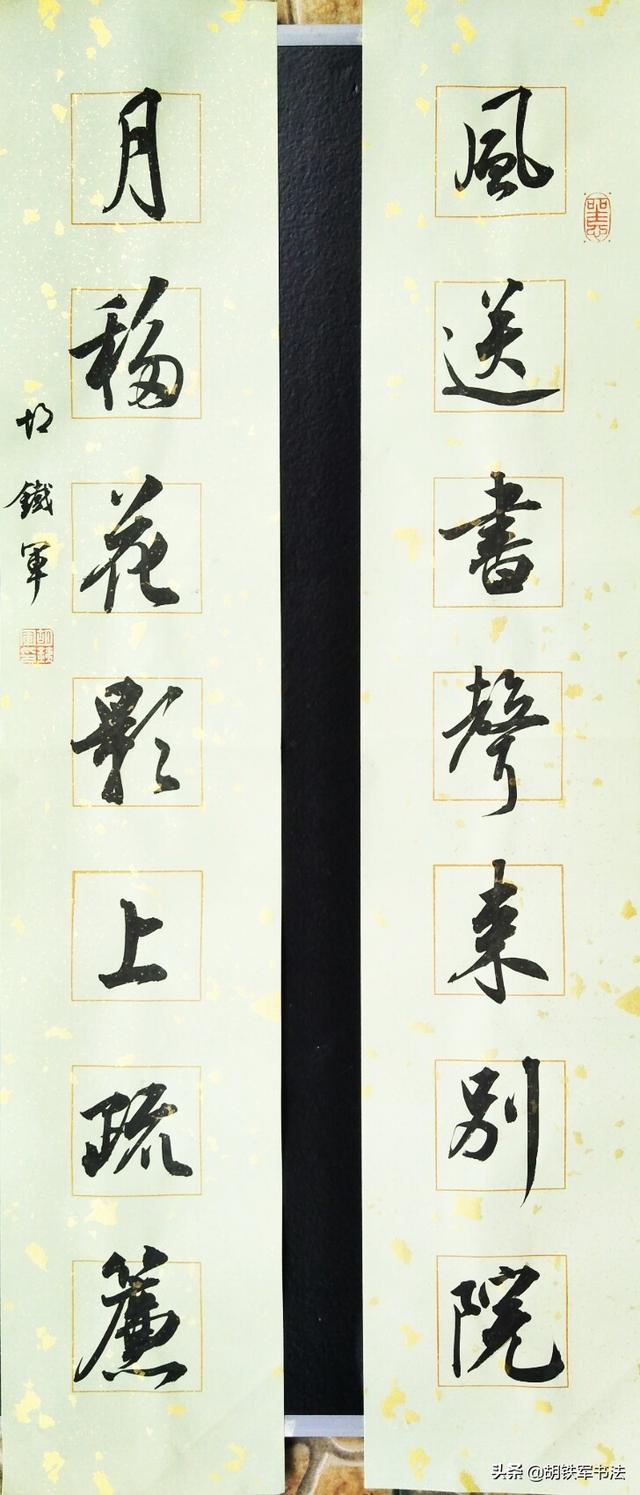 風送書聲来别院
月移花影上疏簾
胡鐵軍
头条 @胡铁军书法